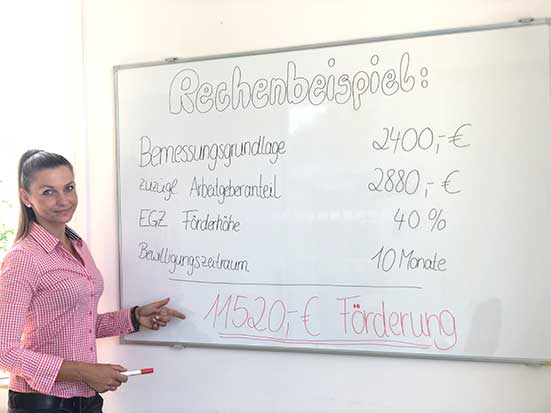 Rechenbeispiel:
Bemessungsgrundlage 2400,-€
zuzügl Arbeitgeberanteil 2880,-€
EGZ Förderhöhe 40%
Bewilligungszeitraum 10 Monate
11520,-€ Förderung